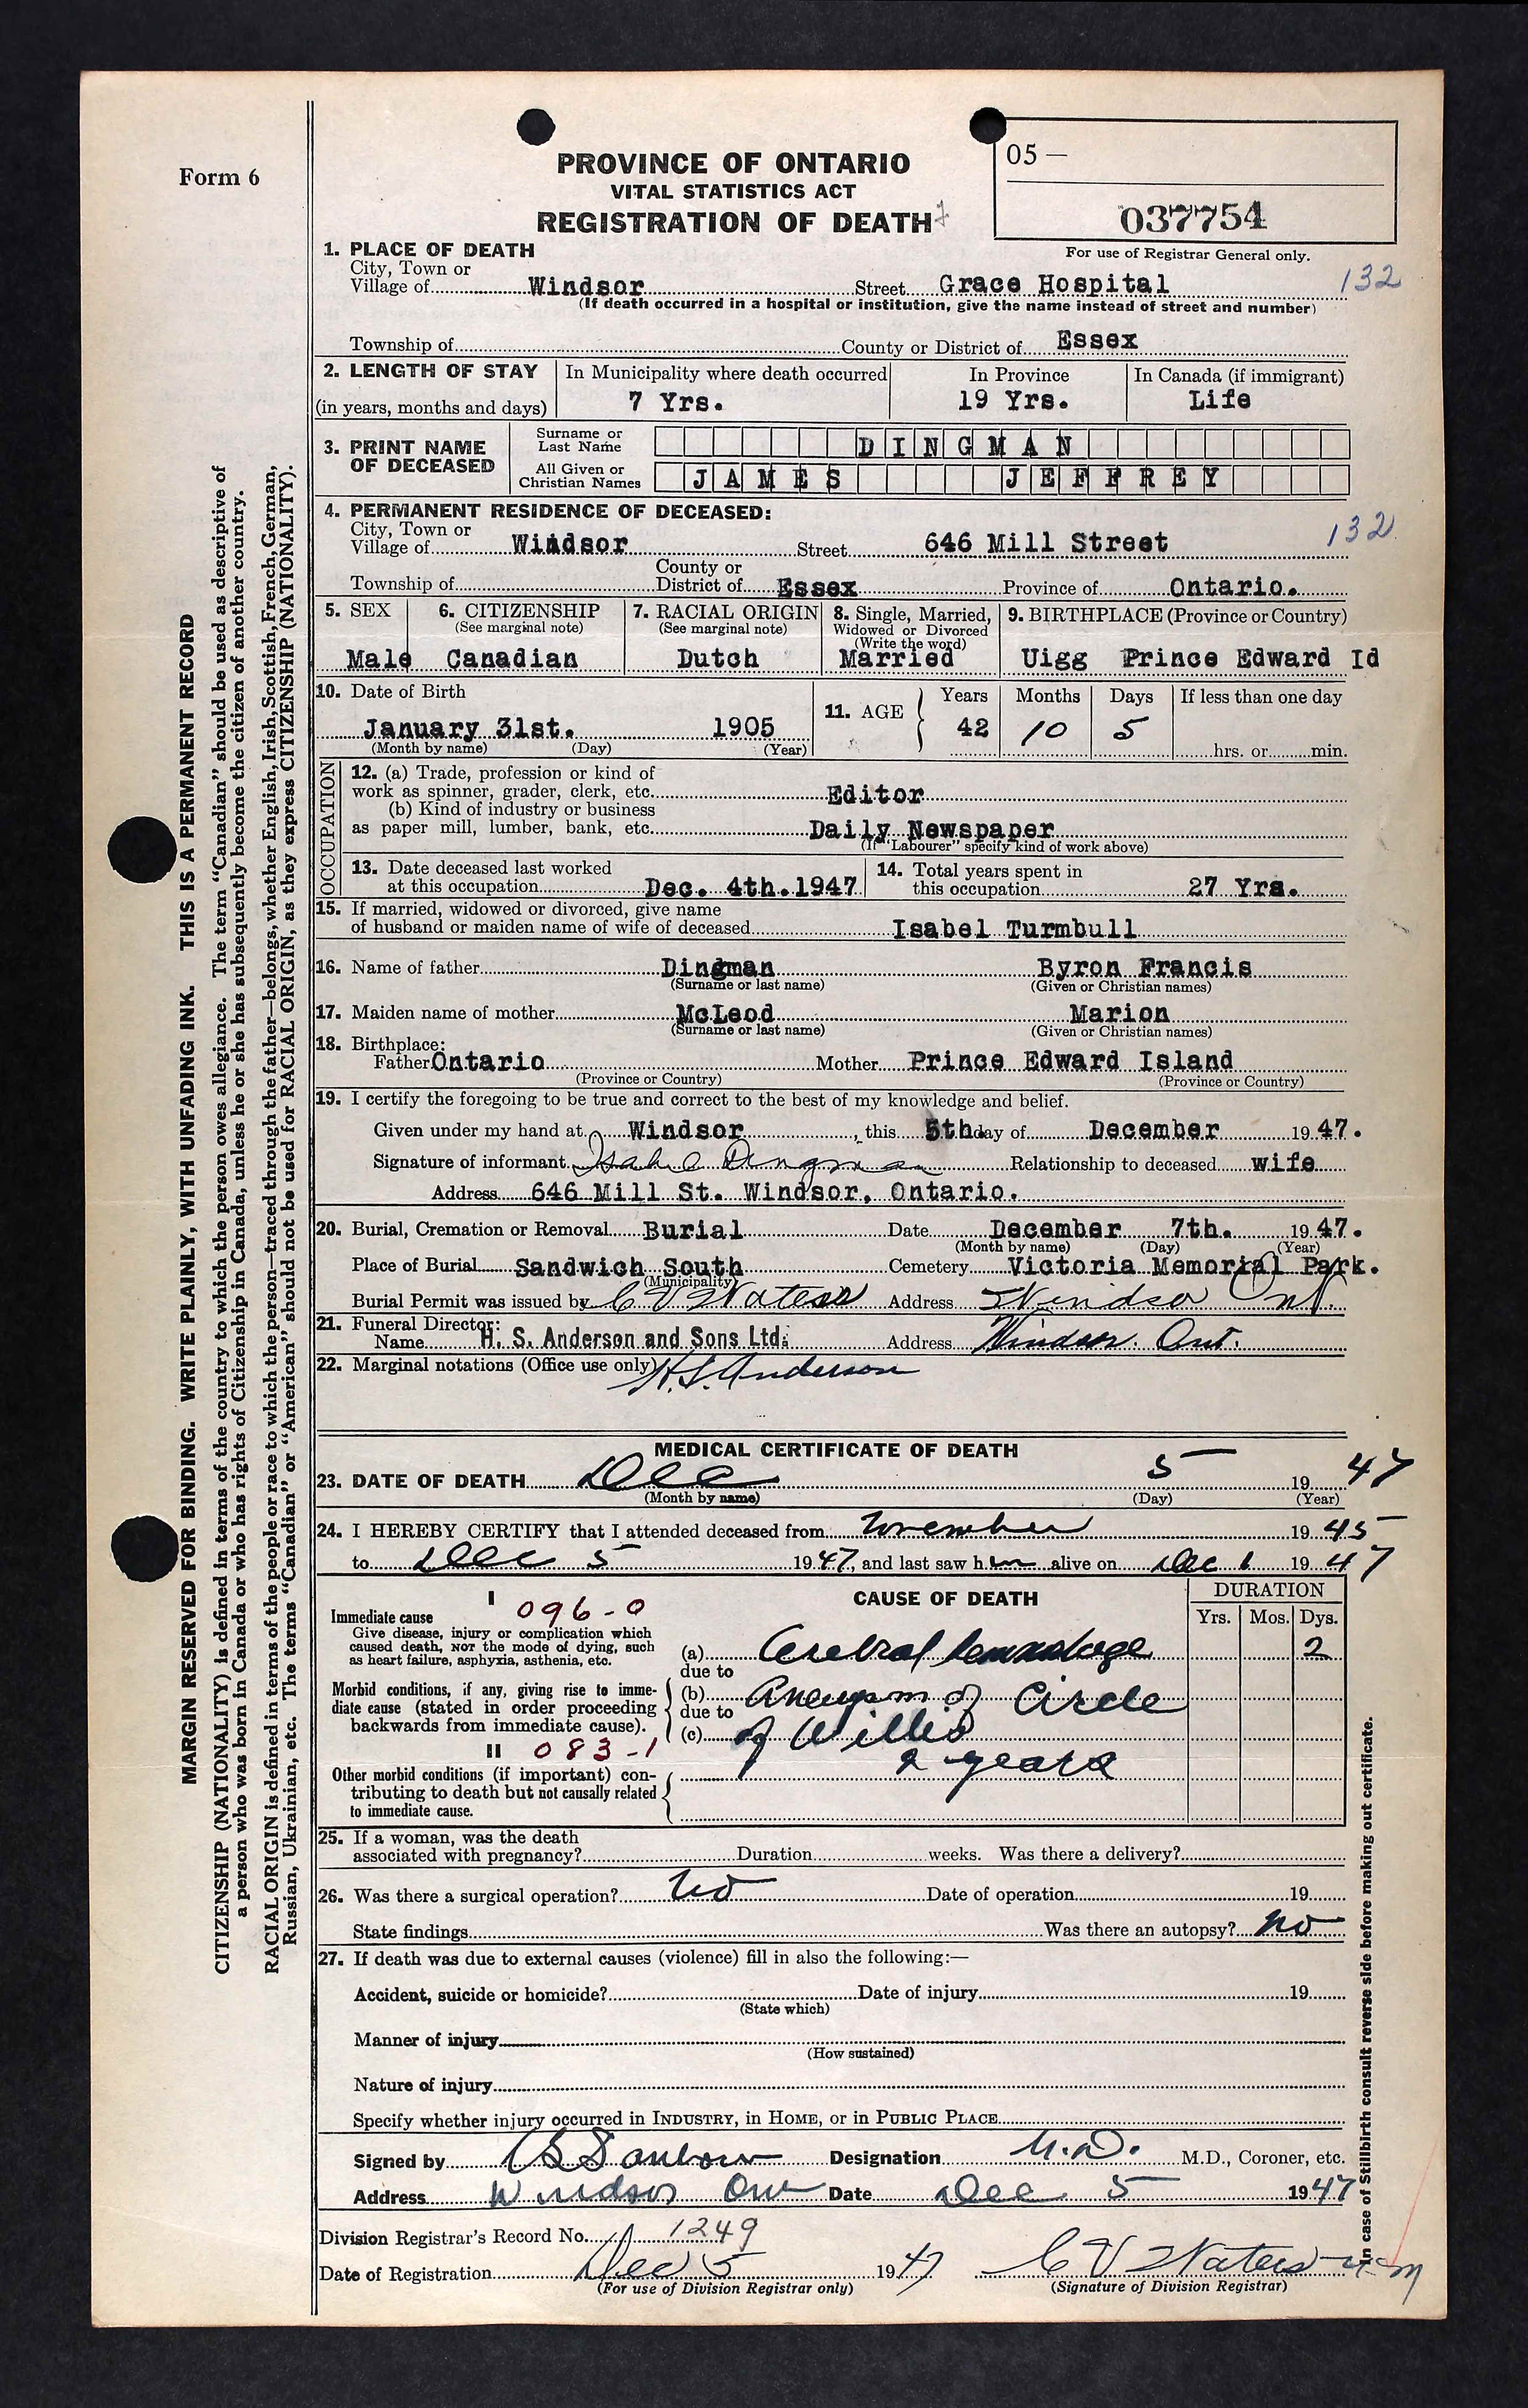 Form 6
PROVINCE OF ONTARIO
VITAL STATISTICS ACT
REGISTRATION OF DEATH
05 —
037754
For use of Registrar General only.
1. PLACE OF DEATH
City, Town or
Village of Windsor Street Grace Hospital 132
(If death occurred in a hospital or institution, give the name instead of street and number)
Township of County or District of Essex
2. LENGTH OF STAY In Municipality where death occurred In Province In Canada (if immigrant)
(in years, months and days) 7 Yrs. 19 Yrs. Life
3. PRINT NAME OF DECEASED
Surname or Last Name DINGMAN
All Given or Christian Names JAMES JEFFREY
4. PERMANENT RESIDENCE OF DECEASED:
City, Town or
Village of Windsor Street 646 Mill Street 132
Township of County or District of Essex Province of Ontario.
5. SEX 6. CITIZENSHIP 7. RACIAL ORIGIN 8. Single, Married, 9. BIRTHPLACE (Province or Country)
(See marginal note) (See marginal note) Widowed or Divorced
(Write the word)
Male Canadian Dutch Married Uigg Prince Edward Id
10. Date of Birth 11. AGE Years Months Days If less than one day
January 31st. 1905 42 10 5
(Month by name) (Day) (Year) hrs. or min.
OCCUPATION
12. (a) Trade, profession or kind of
work as spinner, grader, clerk, etc. Editor
(b) Kind of industry or business
as paper mill, lumber, bank, etc. Daily Newspaper
(If "Labourer" specify kind of work above)
13. Date deceased last worked 14. Total years spent in
at this occupation Dec. 4th. 1947 this occupation 27 Yrs.
15. If married, widowed or divorced, give name
of husband or maiden name of wife of deceased Isabel Turmbull
16. Name of father Dingman Byron Francis
(Surname or last name) (Given or Christian names)
17. Maiden name of mother McLeod Marion
(Surname or last name) (Given or Christian names)
18. Birthplace:
Father Ontario Mother Prince Edward Island
(Province or Country) (Province or Country)
19. I certify the foregoing to be true and correct to the best of my knowledge and belief.
Given under my hand at Windsor, this 5th day of December 1947.
Signature of informant Isabel Dingman Relationship to deceased wife
Address 646 Mill St. Windsor, Ontario.
20. Burial, Cremation or Removal Burial Date December 7th. 1947.
(Month by name) (Day) (Year)
Place of Burial Sandwich South Cemetery Victoria Memorial Park.
(Municipality)
Burial Permit was issued by C V Waters Address Windsor Ont.
21. Funeral Director:
Name H. S. Anderson and Sons Ltd. Address Windsor. Ont.
22. Marginal notations (Office use only) H.S. Anderson
MEDICAL CERTIFICATE OF DEATH
23. DATE OF DEATH Dec 5 1947
(Month by name) (Day) (Year)
24. I HEREBY CERTIFY that I attended deceased from November 1945
to Dec 5 1947, and last saw him alive on Dec 1947
I 096-0 CAUSE OF DEATH DURATION
Immediate cause Yrs. Mos. Dys.
Give disease, injury or complication which
caused death, NOT the mode of dying, such
as heart failure, asphyxia, asthenia, etc.
(a) Cerebral hemorrhage 2
due to
Morbid conditions, if any, giving rise to imme-
diate cause (stated in order proceeding
backwards from immediate cause).
(b) Aneurysm of Circle
due to
(c) of Willis
II 083-1
2 years
Other morbid conditions (if important) con-
tributing to death but not causally related
to immediate cause.
25. If a woman, was the death
associated with pregnancy? Duration weeks. Was there a delivery?
26. Was there a surgical operation? No Date of operation 19
State findings Was there an autopsy? No
27. If death was due to external causes (violence) fill in also the following:—
Accident, suicide or homicide? Date of injury 19
(State which)
Manner of injury
(How sustained)
Nature of injury
Specify whether injury occurred in INDUSTRY, in HOME, or in PUBLIC PLACE
Signed by Designation M.D. M.D., Coroner, etc.
Address Windsor Ont Date Dec 5 1947
Division Registrar's Record No. 1249
Date of Registration Dec 5 1947 C V Waters
(For use of Division Registrar only) (Signature of Division Registrar)
MARGIN RESERVED FOR BINDING. WRITE PLAINLY, WITH UNFADING INK. THIS IS A PERMANENT RECORD
CITIZENSHIP (NATIONALITY) is defined in terms of the country to which the person owes allegiance. The term "Canadian" should be used as descriptive of
a person who was born in Canada or who has rights of Citizenship in Canada, unless he or she has subsequently become the citizen of another country.
RACIAL ORIGIN is defined in terms of the people or race to which the person—traced through the father—belongs, whether English, Irish, Scottish, French, German,
Russian, Ukrainian, etc. The terms "Canadian" or "American" should not be used for RACIAL ORIGIN, as they express CITIZENSHIP (NATIONALITY).
In case of Stillbirth consult reverse side before making out certificate.